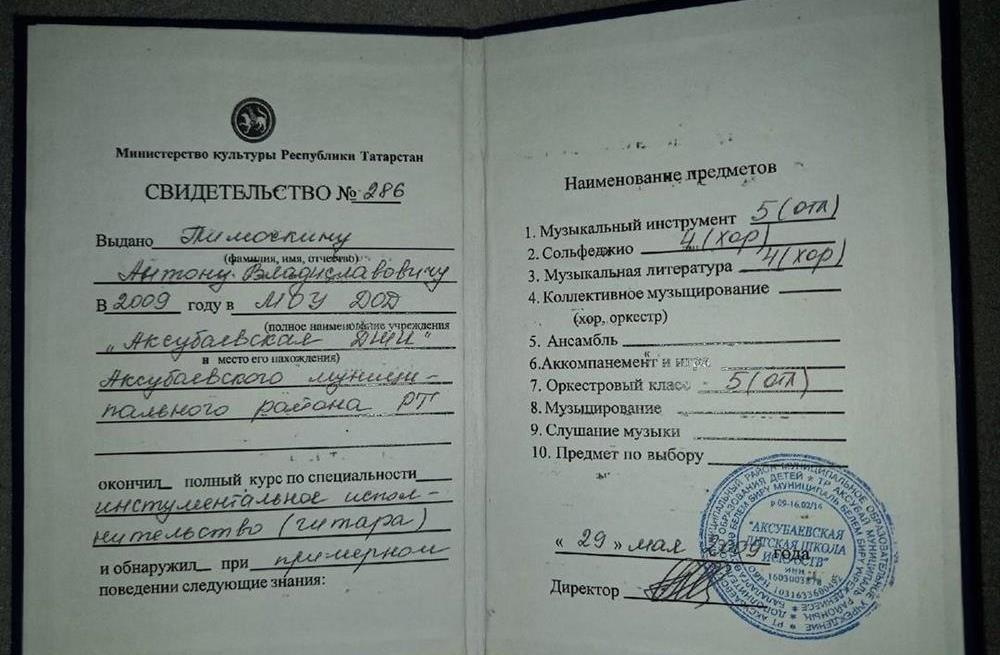 Министерство культуры Республики Татарстан
СВИДЕТЕЛЬСТВО № 286
Выдано Тимоскину
(фамилия, имя, отчество)
Антону Владиславовичу
В 2009 году в МОУ ДОД
(полное наименование учреждения
"Аксубаевская ДШИ"
и место его нахождения)
Аксубаевского муници-
пального района РТ
окончил полный курс по специальности
инструментальное испол-
нительство (гитара)
и обнаружил при примерном
поведении следующие знания:
Наименование предметов
1. Музыкальный инструмент 5 (отл)
2. Сольфеджио 4 (хор)
3. Музыкальная литература 4 (хор)
4. Коллективное музыцирование
(хор, оркестр)
5. Ансамбль
6. Аккомпанемент и игра
7. Оркестровый класс 5 (отл)
8. Музыцирование
9. Слушание музыки
10. Предмет по выбору
« 29 » мая 2009 года
Директор
р 09-16.02/14
"АКСУБАЕВСКАЯ
ДЕТСКАЯ ШКОЛА
ИСКУССТВ"
ИНН